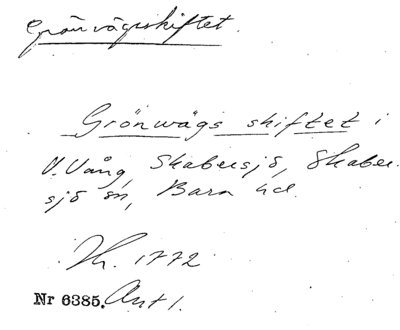 Grönvägsskiftet.
Grönwägs skiftet i
V. Vång, Skabersjö, Skaber-
sjö sn, Bara hd.
Th. 1772
Nr 6385. Ant 1.